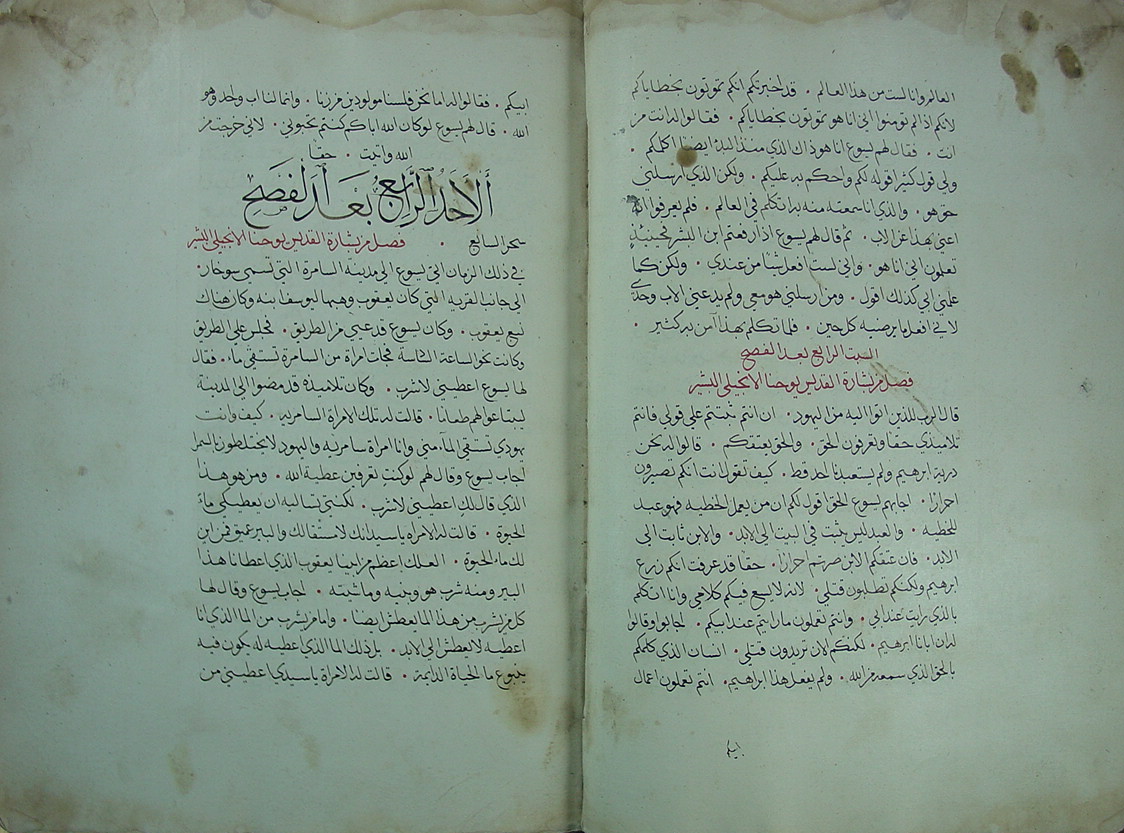 العالم وانا لست من هذا العالم . قد اخبرتكم انكم تموتون بخطاياكم
لانكم اذا لم تومنوا اني انا هو تموتون بخطاياكم . فقالوا له انت من
انت . فقال لهم يسوع انا هو ذاك الذي منذ البدء ايضا اكلمكم .
ولي قول كثيرا قوله لكم واحكم به عليكم . ولكن الذي ارسلني
حق هو . والذي انا سمعته منه به اتكلم في العالم . فلم يعرفوا انه
اعني بهذا عن الاب . ثم قال لهم يسوع اذا رفعتم ابن البشر فحينيذ
تعلمون اني انا هو . واني لست افعل شيا من عندي . ولكن كما
علمني ابي كذلك اقول . ومن ارسلني هو معي ولم يدعني الاب وحدي
لاني افعل ما يرضيه كل حين . فلما تكلم بهذا آمن به كثير .
السبت الرابع بعد الفصح
فصل من بشارة القديس يوحنا الانجيلي البشير
قال الرب للذين اتوا اليه من اليهود . ان انتم ثبتتم على قولي فانتم
تلاميذي حقا وتعرفون الحق . والحق يعتقكم . قالوا له نحن
ذرية ابرهيم ولم يستعبدنا احد قط . كيف تقول انت انكم تصيرون
احرارا . اجابهم يسوع الحق اقول لكم ان من يعمل الخطيه فهو عبد
للخطيه . والعبد ليس يثبت في البيت الى الابد . والابن ثابت الى
الابد . فان عتقكم الابن صرتم احرارا . حقا قد عرفت انكم زرع
ابرهيم ولكنكم تطلبون قتلي . لانه لا يسع فيكم كلامي وانا اتكلم
بالذي رايت عند ابي . وانتم تعملون ما رايتم عند ابيكم . اجابوا وقالوا
له ان ابانا ابرهيم . لكنكم الان تريدون قتلي . انسان الذي كلمكم
بالحق الذي سمعه من الله . ولم يفعل هذا ابرهيم . انتم تعملون اعمال
ابيكم
ابيكم . فقالوا له اما نحن فلسنا مولودين من زنا . وانما لنا اب واحد وهو
الله . قال لهم يسوع لو كان الله اباكم كنتم تحبوني . لاني خرجت من
الله واتيت . حقا
الاحد الرابع بعد الفصح
فصل من بشارة القديس يوحنا الانجيلي البشير
في ذلك الزمان اتى يسوع الى مدينه السامرة التي تسمى سوخار .
الى جانب القريه التي كان يعقوب وهبها ليوسف ابنه وكان هناك
نبع يعقوب . وكان يسوع قد عيي من الطريق . فجلس على الطريق
وكانت نحو الساعة السادسة فجات امراة من السامرة تستقي ماء . فقال
لها يسوع اعطيني لاشرب . وكان تلاميذه قد مضوا الى المدينة
ليبتاعوا لهم طعاما . قالت له تلك الامراة السامريه . كيف وانت
يهودي تستقي الماء مني وانا امراة سامرية واليهود لا يختلطون بالسمرا
اجاب يسوع وقال لهم لو كنت تعرفين عطية الله . ومن هو هذا
الذي قال لك اعطيني لاشرب . لكنتي تساليه ان يعطيكي ماء
الحيوة . قالت له الامراه يا سيد انك لا مستقا لك والبير عميق فمن اين
لك ماء الحيوة . العلك اعظم من ابينا يعقوب الذي اعطانا هذا
البير ومنه شرب هو وبنيه وماشيته . اجاب يسوع وقال لها
كل من يشرب من هذا الما يعطش ايضا . واما من يشرب من الما الذي انا
اعطيه لا يعطش الى الابد . بل ذلك الما الذي اعطيه له يكون فيه
ينبوع ما الحياة الدايمة . قالت له الامراة يا سيدي اعطيني من